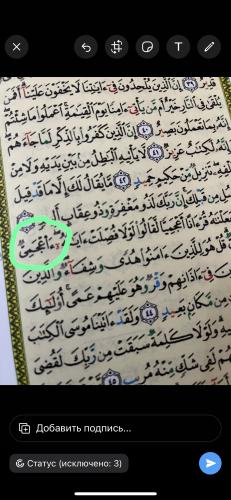 T
قَدِيرٌ ٣٩ إِنَّ ٱلَّذِينَ يُلْحِدُونَ فِىٓ ءَايَٰتِنَا لَا يَخْفَوْنَ عَلَيْنَآ أَفَمَن
يُلْقَىٰ فِى ٱلنَّارِ خَيْرٌ أَم مَّن يَأْتِىٓ ءَامِنًا يَوْمَ ٱلْقِيَٰمَةِ ٱعْمَلُوا۟ مَا شِئْتُمْ
إِنَّهُۥ بِمَا تَعْمَلُونَ بَصِيرٌ ٤٠ إِنَّ ٱلَّذِينَ كَفَرُوا۟ بِٱلذِّكْرِ لَمَّا جَآءَهُمْ
وَإِنَّهُۥ لَكِتَٰبٌ عَزِيزٌ ٤١ لَّا يَأْتِيهِ ٱلْبَٰطِلُ مِنۢ بَيْنِ يَدَيْهِ وَلَا مِنْ
خَلْفِهِۦ تَنزِيلٌ مِّنْ حَكِيمٍ حَمِيدٍ ٤٢ مَّا يُقَالُ لَكَ إِلَّا مَا قَدْ قِيلَ
مِن قَبْلِكَ إِنَّ رَبَّكَ لَذُو مَغْفِرَةٍ وَذُو عِقَابٍ
جَعَلْنَٰهُ قُرْءَانًا أَعْجَمِيًّا لَّقَالُوا۟ لَوْلَا فُصِّلَتْ ءَايَٰتُهُۥٓ ءَا۬عْجَمِىٌّ
قُلْ هُوَ لِلَّذِينَ ءَامَنُوا۟ هُدًى وَشِفَآءٌ وَٱلَّذِينَ
فِىٓ ءَاذَانِهِمْ وَقْرٌ وَهُوَ عَلَيْهِمْ عَمًى أُو۟لَٰٓئِكَ
مِن مَّكَانٍۭ بَعِيدٍ ٤٤ وَلَقَدْ ءَاتَيْنَا مُوسَى ٱلْكِتَٰبَ
وَلَوْلَا كَلِمَةٌ سَبَقَتْ مِن رَّبِّكَ لَقُضِىَ
لَفِى شَكٍّ مِّنْهُ مُرِيبٍ ٤٥
Добавить подпись...
Статус (исключено: 3)